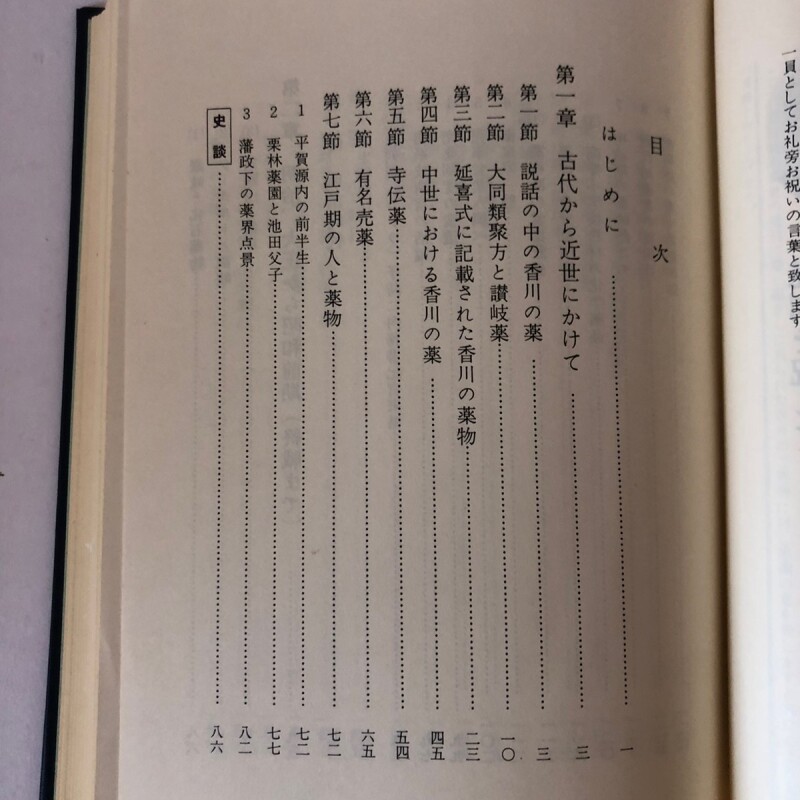 一員としてお礼旁お祝いの言葉と致します
目次
はじめに……一
第一章 古代から近世にかけて……三
第一節 説話の中の香川の薬……三
第二節 大同類聚方と讃岐薬……一〇
第三節 延喜式に記載された香川の薬物……二三
第四節 中世における香川の薬……四五
第五節 寺伝薬……五四
第六節 有名売薬……六五
第七節 江戸期の人と薬物……七二
1 平賀源内の前半生……七二
2 栗林薬園と池田父子……七七
3 藩政下の薬界点景……八二
史談……八六